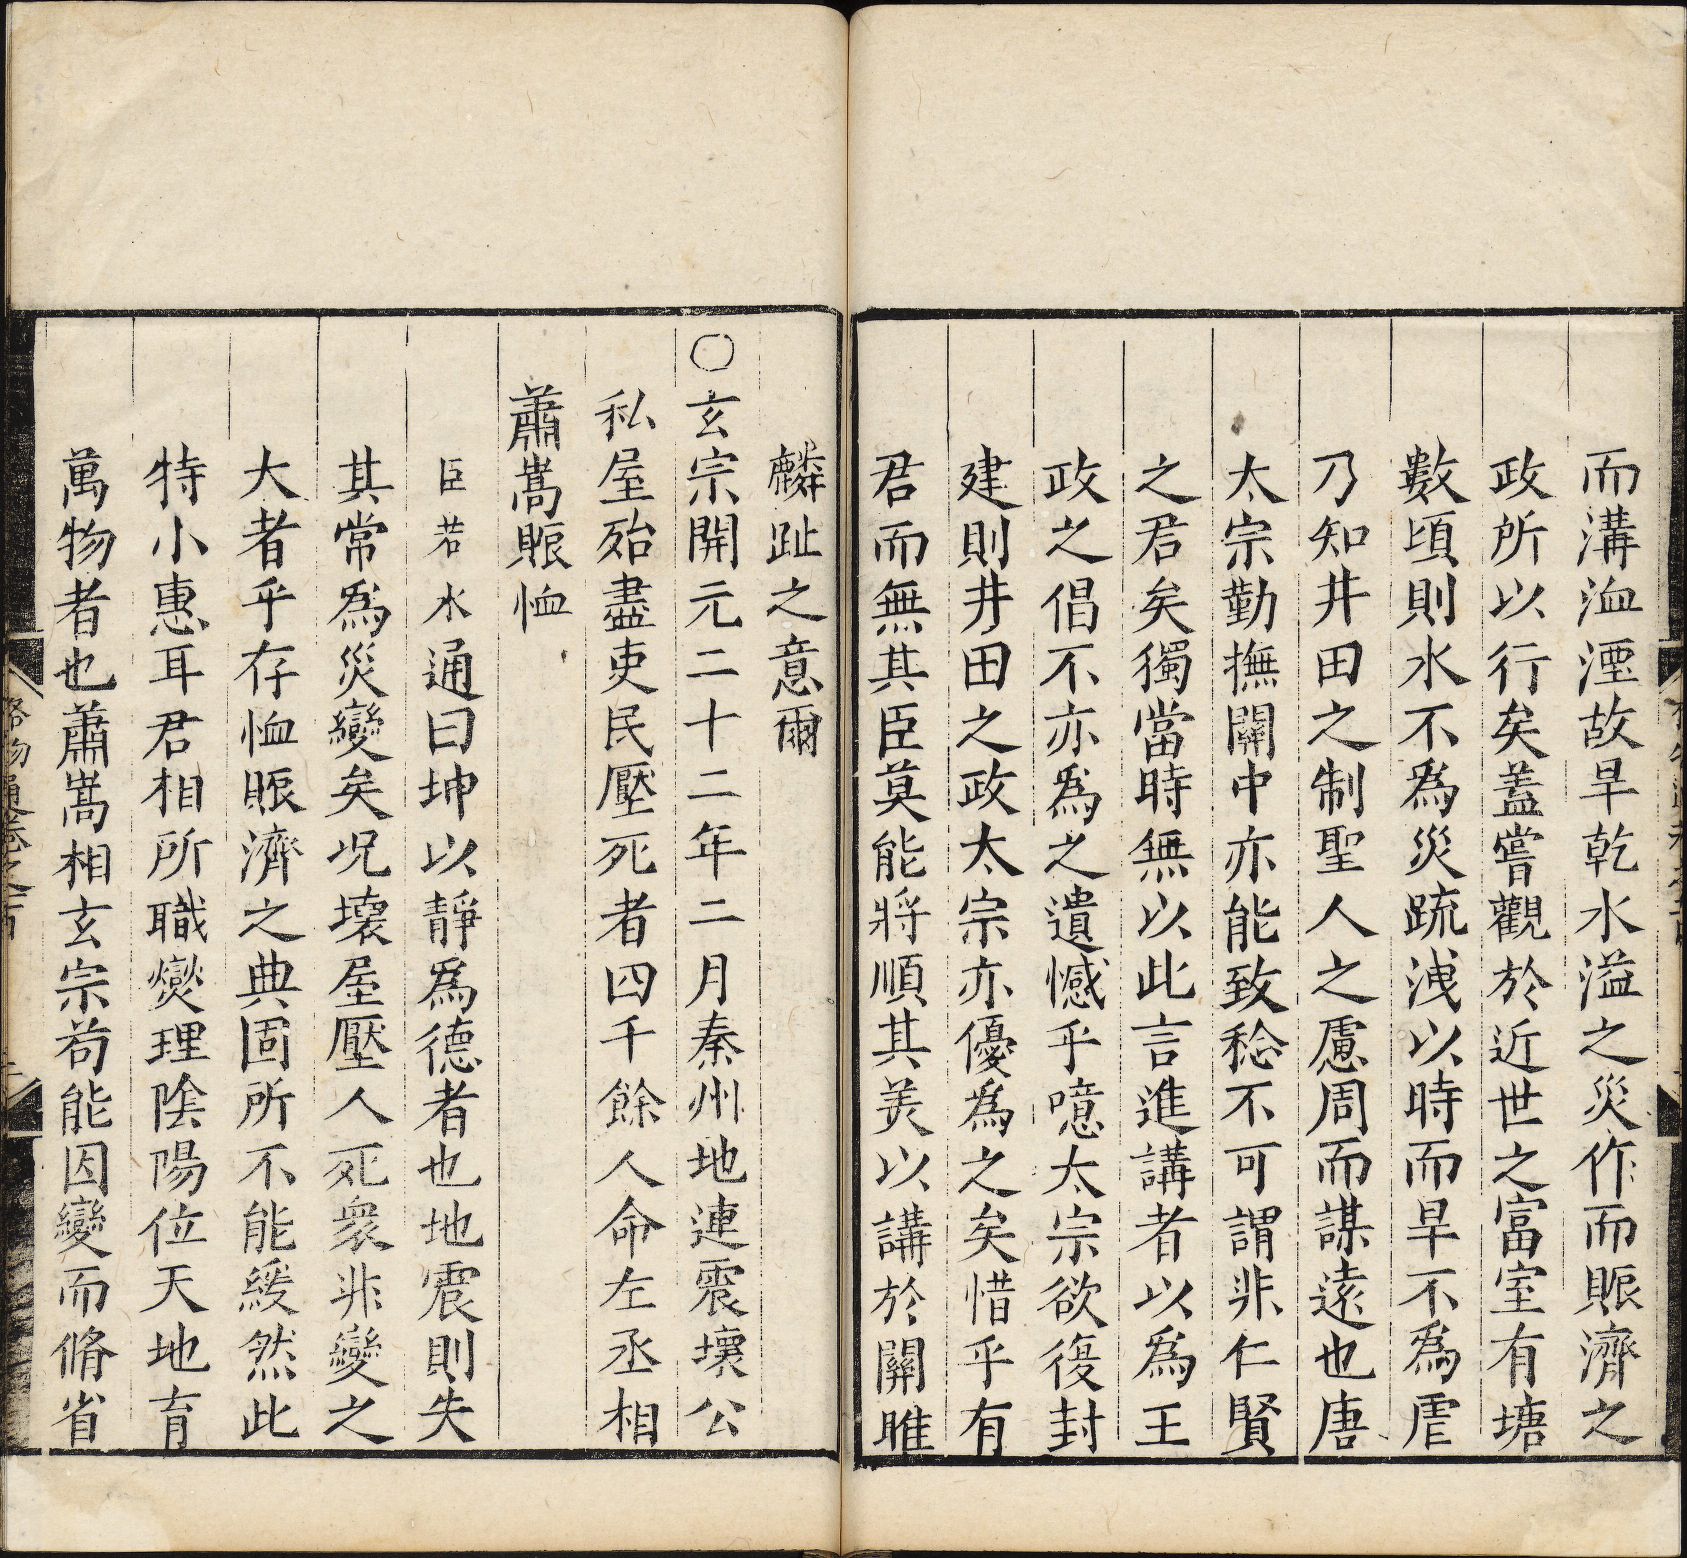 而溝洫湮故旱乾水溢之災作而賑濟之
政所以行矣蓋嘗觀於近世之富室有塘
數頃則水不爲災疏洩以時而旱不爲虐
乃知井田之制聖人之慮周而謀遠也唐
太宗勤撫關中亦能致稔不可謂非仁賢
之君矣獨當時無以此言進講者以爲王
政之倡不亦爲之遺憾乎噫太宗欲復封
建則井田之政太宗亦優爲之矣惜乎有
君而無其臣莫能將順其美以講於關雎
麟趾之意爾
○玄宗開元二十二年二月秦州地連震壞公
私屋殆盡吏民壓死者四千餘人命左丞相
蕭嵩賑恤
臣若水通曰坤以靜爲德者也地震則失
其常爲災變矣况壞屋壓人死衆非變之
大者乎存恤賑濟之典固所不能緩然此
特小惠耳君相所職燮理陰陽位天地育
萬物者也蕭嵩相玄宗苟能因變而脩省
格物通卷之